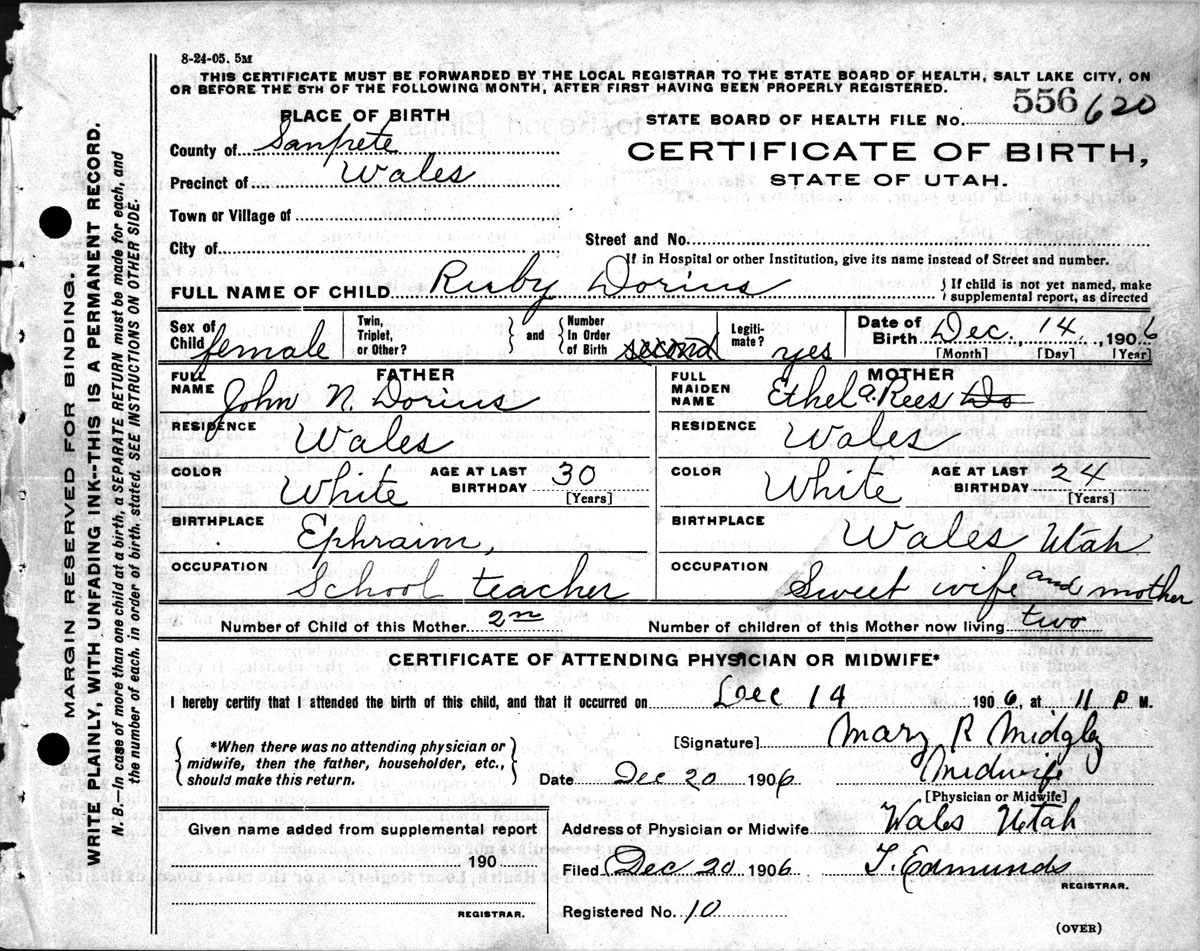 8-24-05. 5M
THIS CERTIFICATE MUST BE FORWARDED BY THE LOCAL REGISTRAR TO THE STATE BOARD OF HEALTH, SALT LAKE CITY, ON
OR BEFORE THE 5TH OF THE FOLLOWING MONTH, AFTER FIRST HAVING BEEN PROPERLY REGISTERED.
556 620
PLACE OF BIRTH
STATE BOARD OF HEALTH FILE No.
County of Sanpete
CERTIFICATE OF BIRTH,
Precinct of Wales
STATE OF UTAH.
Town or Village of
City of
Street and No.
If in Hospital or other Institution, give its name instead of Street and number.
FULL NAME OF CHILD Ruby Dorius
If child is not yet named, make
supplemental report, as directed
Sex of Child female
Twin, Triplet, or Other?
and
Number In Order of Birth second
Legiti- mate? yes
Date of Birth Dec, 14, 1906
[Month] [Day] [Year]
FATHER
FULL NAME John N. Dorius
MOTHER
FULL MAIDEN NAME Ethel a. Rees Do
RESIDENCE Wales
RESIDENCE Wales
COLOR White AGE AT LAST BIRTHDAY 30 [Years]
COLOR White AGE AT LAST BIRTHDAY 24 [Years]
BIRTHPLACE Ephraim,
BIRTHPLACE Wales Utah
OCCUPATION School teacher
OCCUPATION Sweet wife and mother
Number of Child of this Mother 2n
Number of children of this Mother now living two
CERTIFICATE OF ATTENDING PHYSICIAN OR MIDWIFE*
I hereby certify that I attended the birth of this child, and that it occurred on Dec 14 1906, at 11 P M.
*When there was no attending physician or
midwife, then the father, householder, etc.,
should make this return.
[Signature] Mary R Midgley
Date Dec 20 1906 Midwife
[Physician or Midwife]
Given name added from supplemental report
190
REGISTRAR.
Address of Physician or Midwife Wales Utah
Filed Dec 20 1906 T. Edmunds
REGISTRAR.
Registered No. 10
(OVER)
MARGIN RESERVED FOR BINDING.
WRITE PLAINLY, WITH UNFADING INK--THIS IS A PERMANENT RECORD.
N. B.—In case of more than one child at a birth, a SEPARATE RETURN must be made for each, and
the number of each, in order of birth, stated. SEE INSTRUCTIONS ON OTHER SIDE.